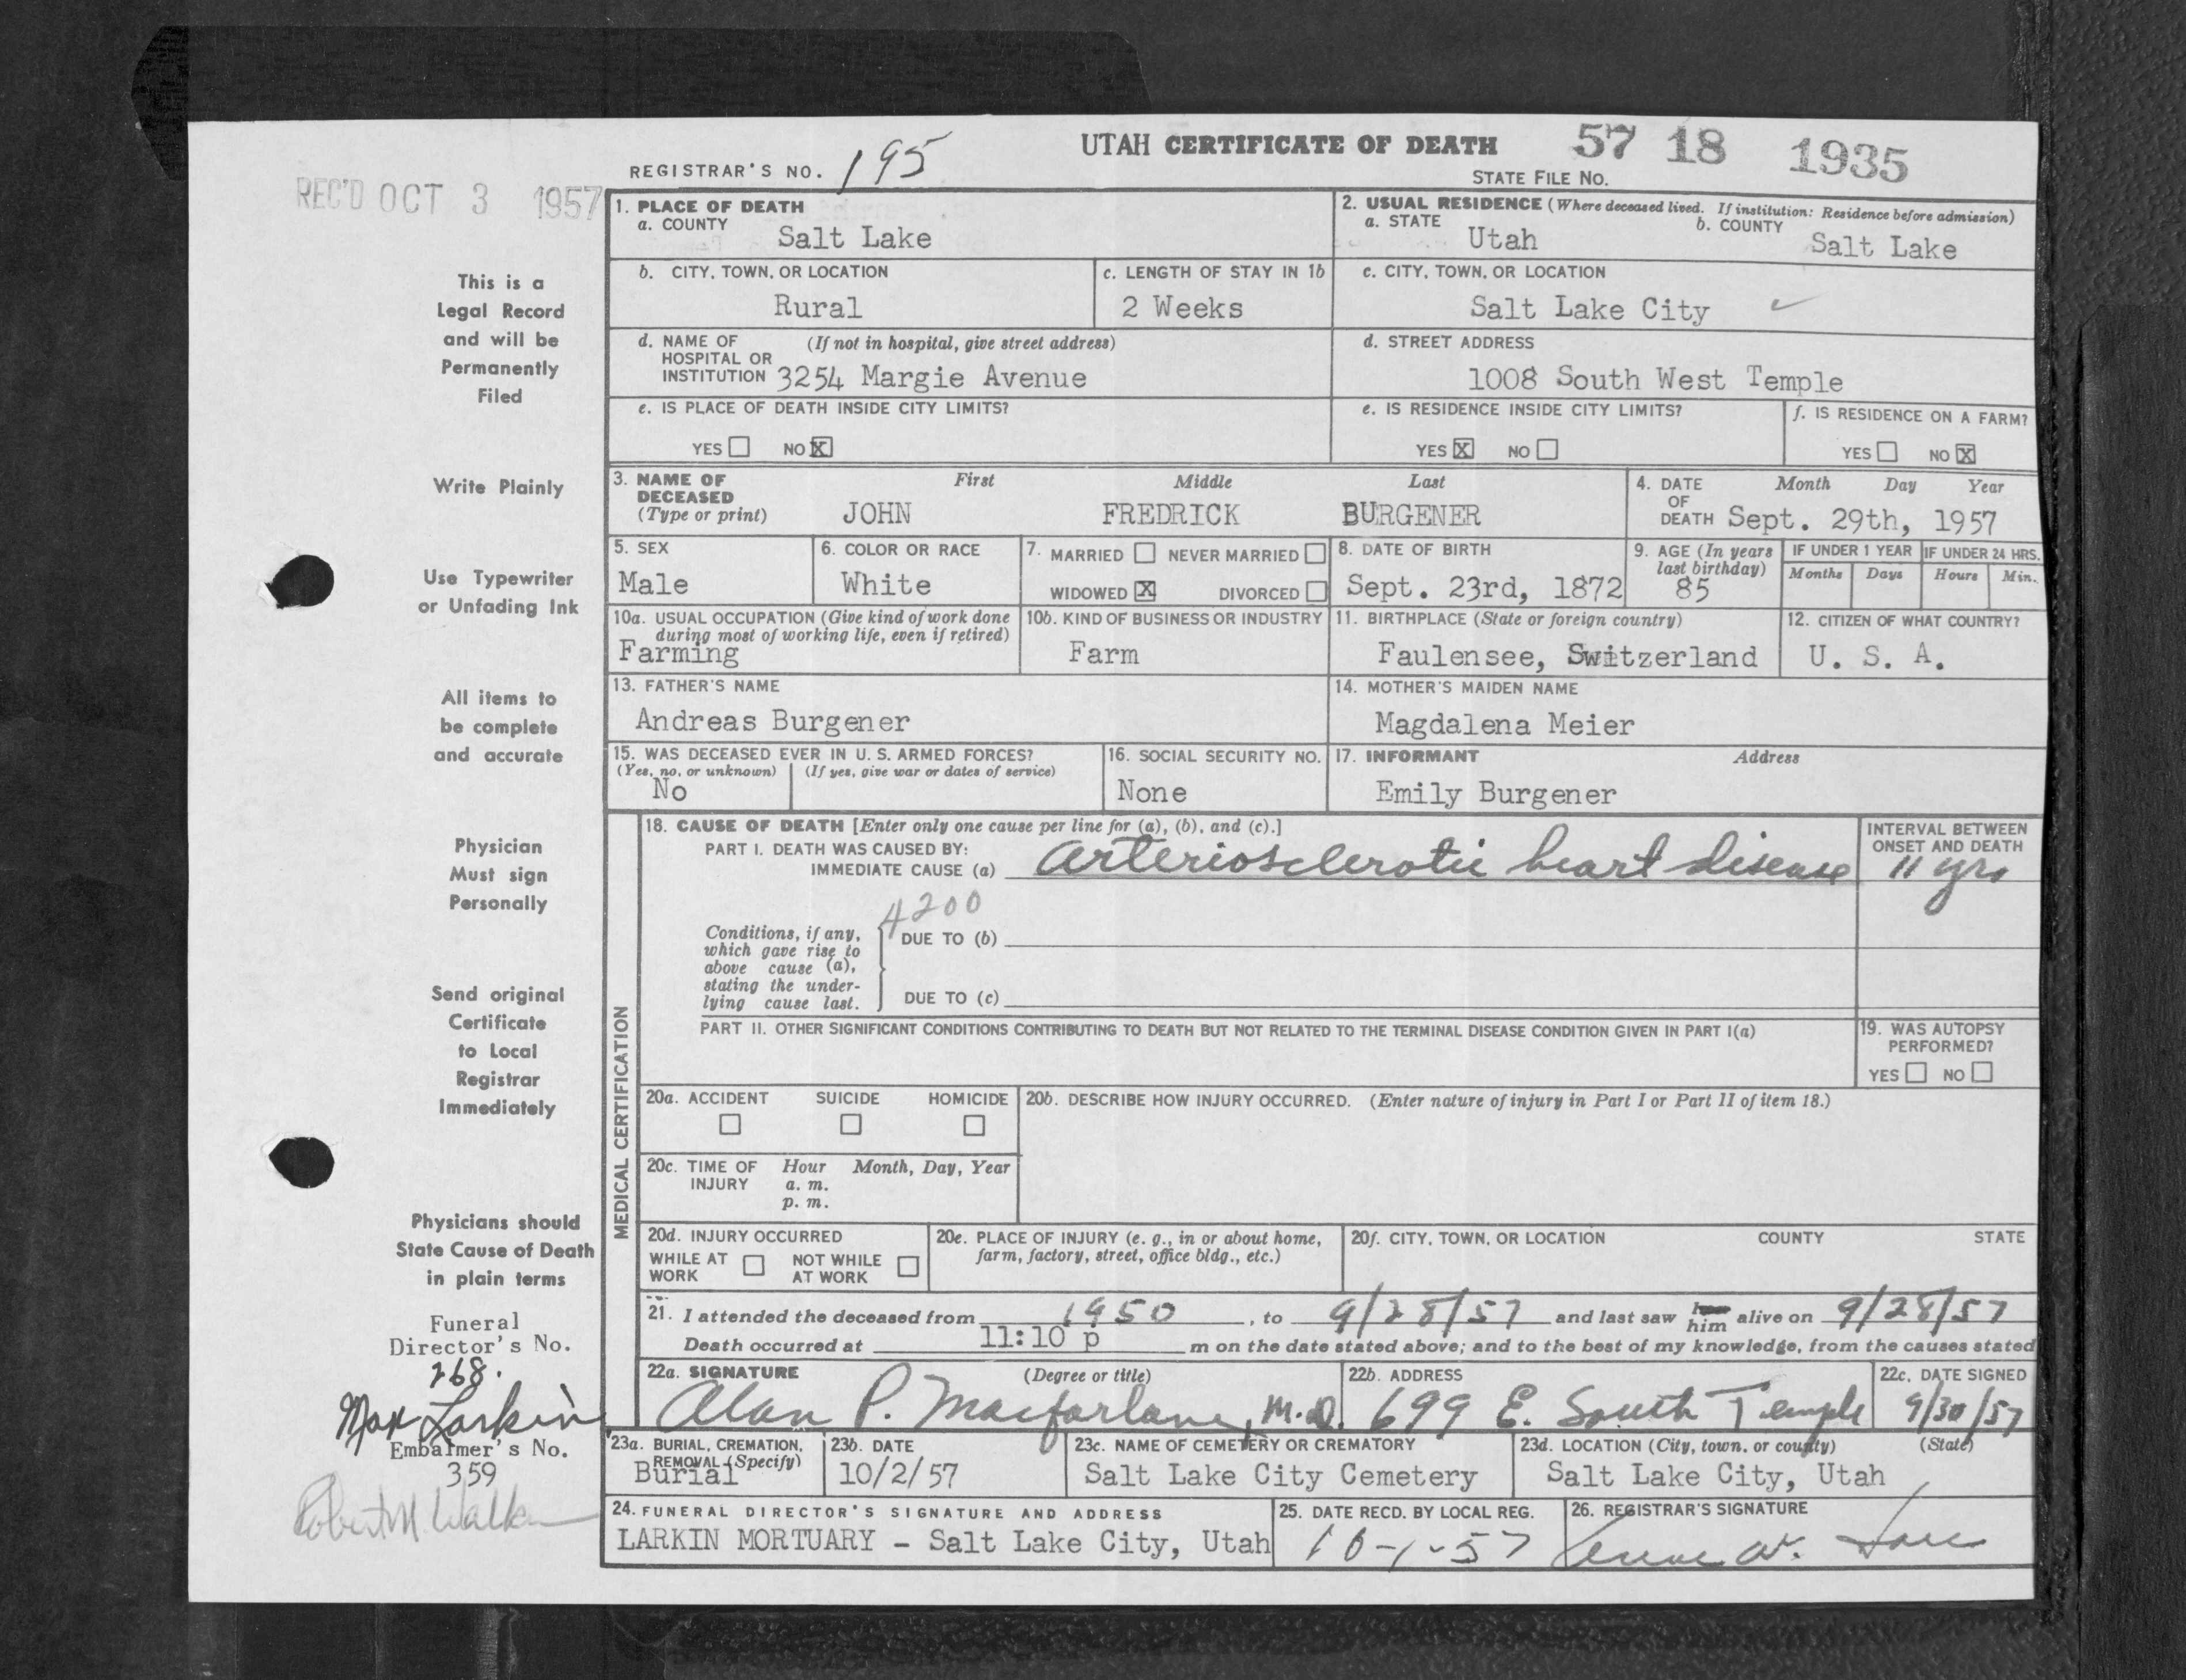 UTAH CERTIFICATE OF DEATH 57 18 1935
REGISTRAR'S NO. 195
STATE FILE NO.
REC'D OCT 3 1957
This is a
Legal Record
and will be
Permanently
Filed
Write Plainly
Use Typewriter
or Unfading Ink
All items to
be complete
and accurate
Physician
Must sign
Personally
Send original
Certificate
to Local
Registrar
Immediately
Physicians should
State Cause of Death
in plain terms
Funeral
Director's No.
268.
Max Larkin
Embalmer's No.
359
Robert M Walk
1. PLACE OF DEATH
a. COUNTY Salt Lake
2. USUAL RESIDENCE (Where deceased lived. If institution: Residence before admission)
a. STATE Utah b. COUNTY Salt Lake
b. CITY, TOWN, OR LOCATION
Rural
c. LENGTH OF STAY IN 1b
2 Weeks
c. CITY, TOWN, OR LOCATION
Salt Lake City
d. NAME OF (If not in hospital, give street address)
HOSPITAL OR
INSTITUTION 3254 Margie Avenue
d. STREET ADDRESS
1008 South West Temple
e. IS PLACE OF DEATH INSIDE CITY LIMITS?
YES NO X
e. IS RESIDENCE INSIDE CITY LIMITS?
YES X NO
f. IS RESIDENCE ON A FARM?
YES NO X
3. NAME OF First Middle Last
DECEASED
(Type or print) JOHN FREDRICK BURGENER
4. DATE Month Day Year
OF
DEATH Sept. 29th, 1957
5. SEX
Male
6. COLOR OR RACE
White
7. MARRIED NEVER MARRIED
WIDOWED X DIVORCED
8. DATE OF BIRTH
Sept. 23rd, 1872
9. AGE (In years
last birthday)
85
IF UNDER 1 YEAR IF UNDER 24 HRS.
Months Days Hours Min.
10a. USUAL OCCUPATION (Give kind of work done
during most of working life, even if retired)
Farming
10b. KIND OF BUSINESS OR INDUSTRY
Farm
11. BIRTHPLACE (State or foreign country)
Faulensee, Switzerland
12. CITIZEN OF WHAT COUNTRY?
U. S. A.
13. FATHER'S NAME
Andreas Burgener
14. MOTHER'S MAIDEN NAME
Magdalena Meier
15. WAS DECEASED EVER IN U. S. ARMED FORCES?
(Yes, no, or unknown) (If yes, give war or dates of service)
No
16. SOCIAL SECURITY NO.
None
17. INFORMANT Address
Emily Burgener
MEDICAL CERTIFICATION
18. CAUSE OF DEATH [Enter only one cause per line for (a), (b), and (c).]
PART I. DEATH WAS CAUSED BY:
IMMEDIATE CAUSE (a) Arteriosclerotic heart disease
INTERVAL BETWEEN
ONSET AND DEATH
11 yrs
4200
Conditions, if any,
which gave rise to
above cause (a),
stating the under-
lying cause last.
DUE TO (b)
DUE TO (c)
PART II. OTHER SIGNIFICANT CONDITIONS CONTRIBUTING TO DEATH BUT NOT RELATED TO THE TERMINAL DISEASE CONDITION GIVEN IN PART I(a)
19. WAS AUTOPSY
PERFORMED?
YES NO
20a. ACCIDENT SUICIDE HOMICIDE
20b. DESCRIBE HOW INJURY OCCURRED. (Enter nature of injury in Part I or Part II of item 18.)
20c. TIME OF Hour Month, Day, Year
INJURY a. m.
p. m.
20d. INJURY OCCURRED
WHILE AT NOT WHILE
WORK AT WORK
20e. PLACE OF INJURY (e. g., in or about home,
farm, factory, street, office bldg., etc.)
20f. CITY, TOWN, OR LOCATION COUNTY STATE
21. I attended the deceased from 1950, to 9/28/57 and last saw him alive on 9/28/57
Death occurred at 11:10 p m on the date stated above; and to the best of my knowledge, from the causes stated
22a. SIGNATURE (Degree or title)
Alan P. Macfarlane, M.D.
22b. ADDRESS
699 E. South Temple
22c. DATE SIGNED
9/30/57
23a. BURIAL, CREMATION,
REMOVAL (Specify)
Burial
23b. DATE
10/2/57
23c. NAME OF CEMETERY OR CREMATORY
Salt Lake City Cemetery
23d. LOCATION (City, town, or county) (State)
Salt Lake City, Utah
24. FUNERAL DIRECTOR'S SIGNATURE AND ADDRESS
LARKIN MORTUARY - Salt Lake City, Utah
25. DATE RECD. BY LOCAL REG.
10-1-57
26. REGISTRAR'S SIGNATURE